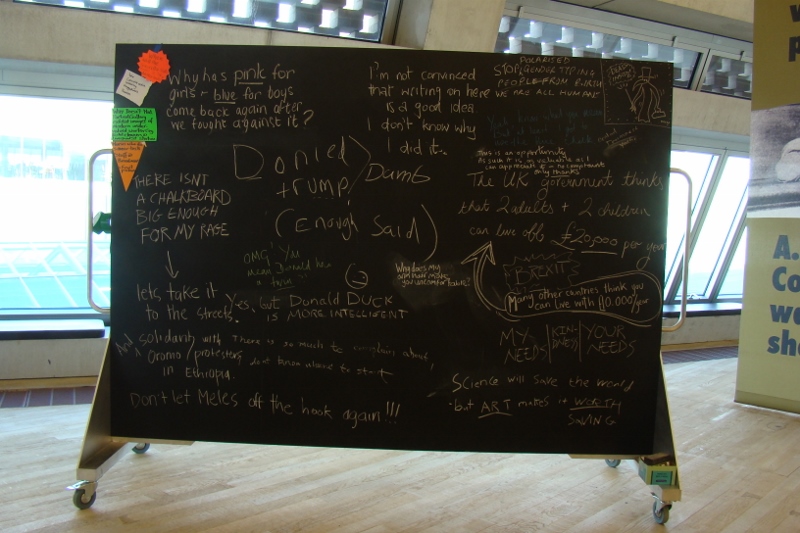 Why has pink for
girls + blue for boys
come back again after
we fought against it?
I'm not convinced
that writing on here
is a good idea
I don't know why
I did it.
POLARISED
STOP GENDER STYPING
PEOPLE FROM BIRTH
WE ARE ALL HUMAN
THERE ISNT
A CHALKBOARD
BIG ENOUGH
FOR MY RAGE
lets take it
to the streets.
And solidarity with
Oromo protesters
in Ethiopia.
Don't let Meles off the hook again!!!
Donled
trump
Dumb
(Enough Said)
OMG! You
mean Donald has
a
Yes, but DONALD DUCK
IS MORE INTELLIGENT
There is so much to complain about,
dont know where to start
Why does my
make
you uncomfortable?
This is an opportunity
The UK government thinks
that 2 adults + 2 children
can live off £20,000 per year
BREXIT
Many other countries think you
can live with 10.000/year
MY NEEDS
KINDNESS
YOUR NEEDS
Science will save the world
but ART makes it WORTH
SAVING
w
p
A.
Co
we
sh